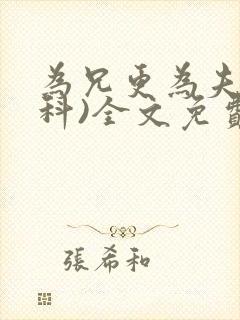 為兄更為夫
科)全文免費
張希和